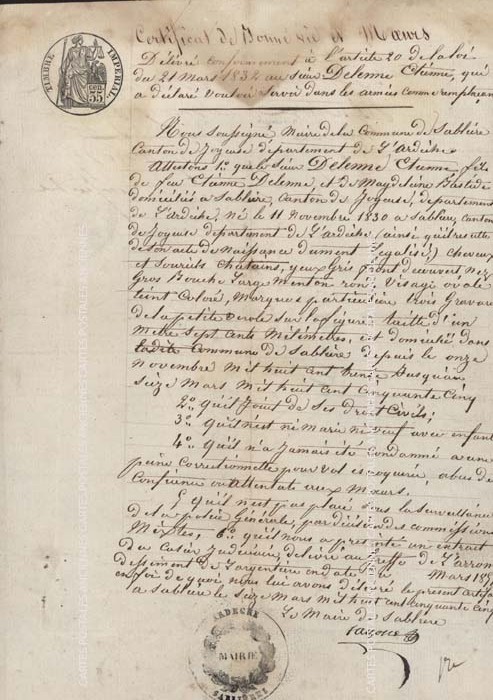 Certificat de Bonne vie et Mœurs
Délivré conformement à l'article 20 de la loi
du 21 Mars 1832 au sieur Delenne Etienne, qui
a déclaré vouloir servir dans les armées comme remplaçant
TIMBRE IMPERIAL
35
Nous soussigné Maire de la Commune de Sablière
Canton de Joyeuse département de L'Ardèche
Attestons 1º que le sieur Delenne Etienne fils
de feu Etienne Delenne, et de Magdeleine Bastide
domiciliés a Sablière, canton de Joyeuse, département
de L'ardèche, né le 11 Novembre 1830 a Sablière, canton
de Joyeuse département de L'ardèche (ainsi qu'il resulte
de son acte de Naissance dument legalisé,) cheveux
et sourcils chatains, yeux Gris front découvert nez
Gros Bouche Large Menton rond Visage ovale
teint Coloré, Marques particulière trois Gravures
de la petite verole sur la figure taille d'un
Metre sept cents Milimetres, et domicilié dans
ladite Commune de Sablière depuis le onze
Novembre Mil huit cent trente Jusqu'au
seize Mars Mil huit cent cinquante Cinq
2º qu'il Jouit de ses droit Civils;
3º qu'il n'est ni marié ni veuf avec enfant
4º qu'il n'a jamais été condamné a une
peine correctionnelle pour vol escroquerie, abus de
Confiance ou Attentats aux Mœurs.
5º qu'il n'est pas placé sous la surveillance
de la police Générale, par décision des commissions
Mixtes, 6º qu'il nous a présenté un extrait
du Casier Judiciaire, délivré au Greffe de L'arron
dissement de Largentière en date Mars 185
en foi de quoi nous lui avons délivré le présent
a Sablière le seize Mars Mil huit cent cinquante cinq
Le Maire de Sablière
ARDECHE
MAIRIE